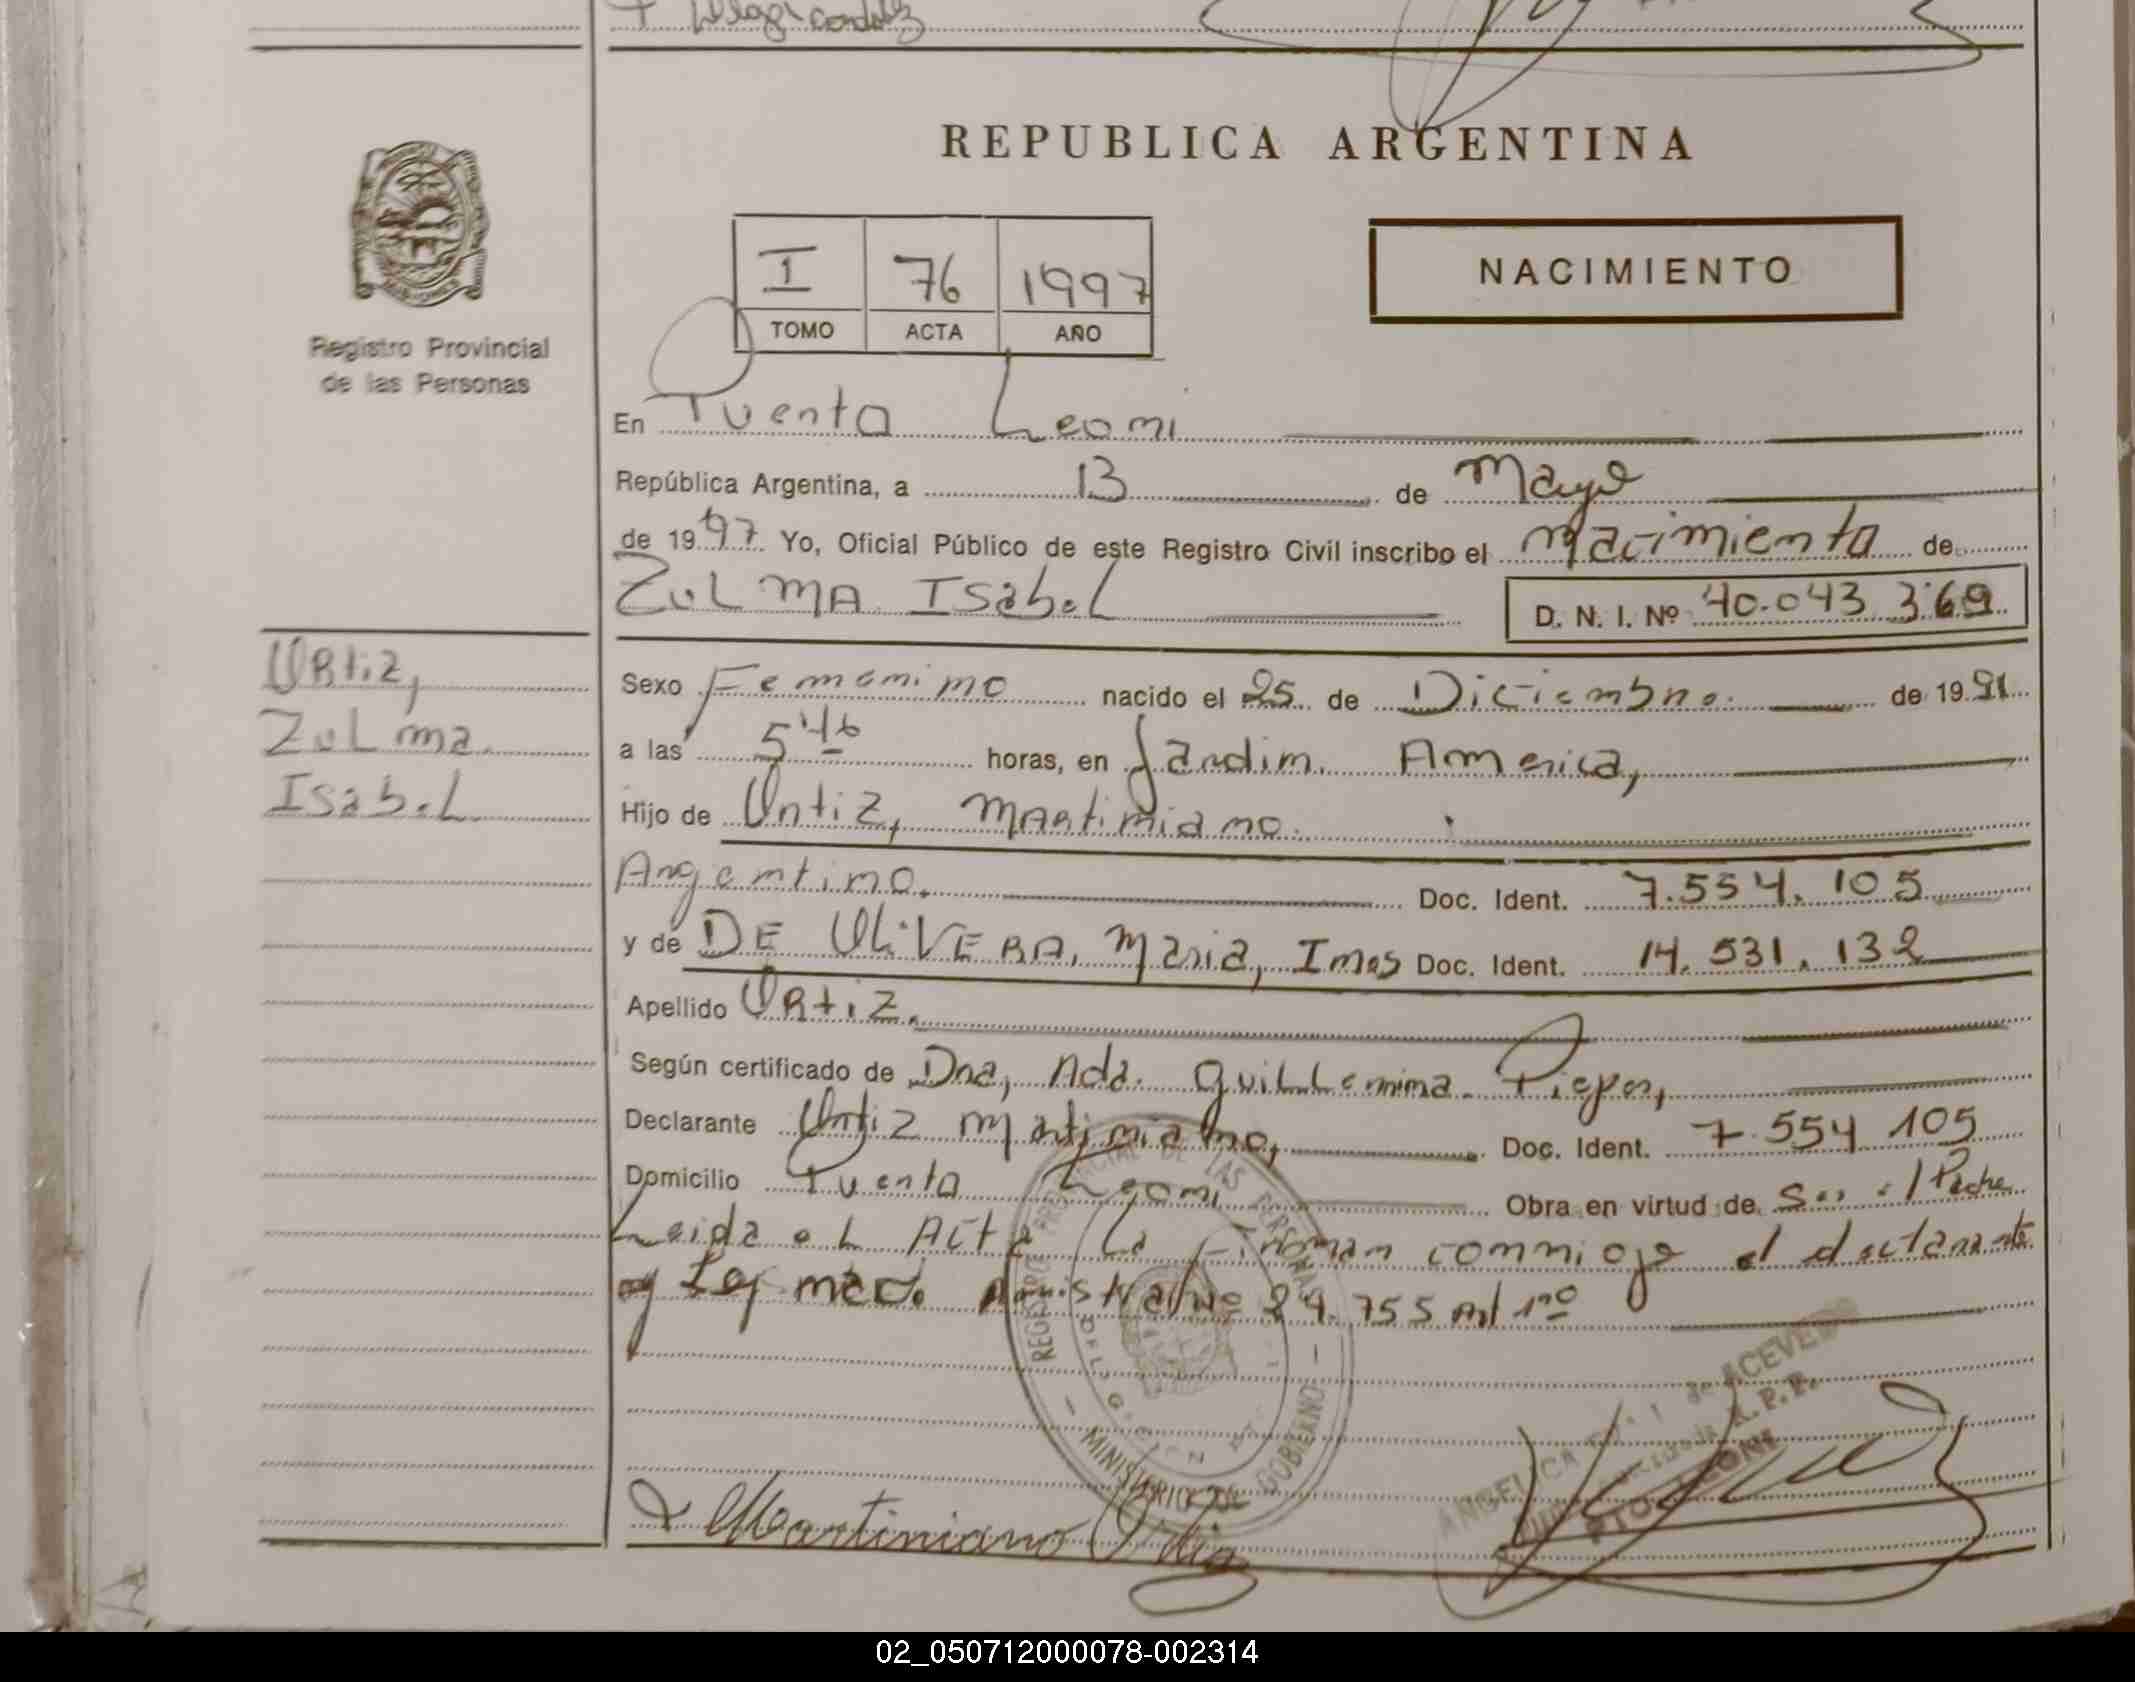 REPUBLICA ARGENTINA
NACIMIENTO
I 76 1997
TOMO ACTA AÑO
Registro Provincial
de las Personas
En Puerto Leoni
República Argentina, a 13 de Mayo
de 1997 Yo, Oficial Público de este Registro Civil inscribo el nacimiento de
ZULMA ISabel D. N. I. Nº 40.043 369
Ortiz,
Zulma
Isabel
Sexo Femenino nacido el 25 de Diciembre de 1991
a las 5 horas, en Jardin America,
Hijo de Ortiz, Martiniano
Argentino. Doc. Ident. 7.554.105
y de DE OLiVERA, Maria, Ines Doc. Ident. 14.531.132
Apellido Ortiz.
Según certificado de Dra, Ada Guillermina
Declarante Ortiz Martiniano, Doc. Ident. 7.554 105
Domicilio Puerto Leoni Obra en virtud de Ser el Padre
Leida el Acta La Firman conmigo el declarante
24.755
REGISTRO PROVINCIAL DE LAS PERSONAS
MINISTERIO DE GOBIERNO
ANGELICA de ACEVEDO
R.P.P.
PTO. LEONI
Martiniano Ortiz
02_050712000078-002314